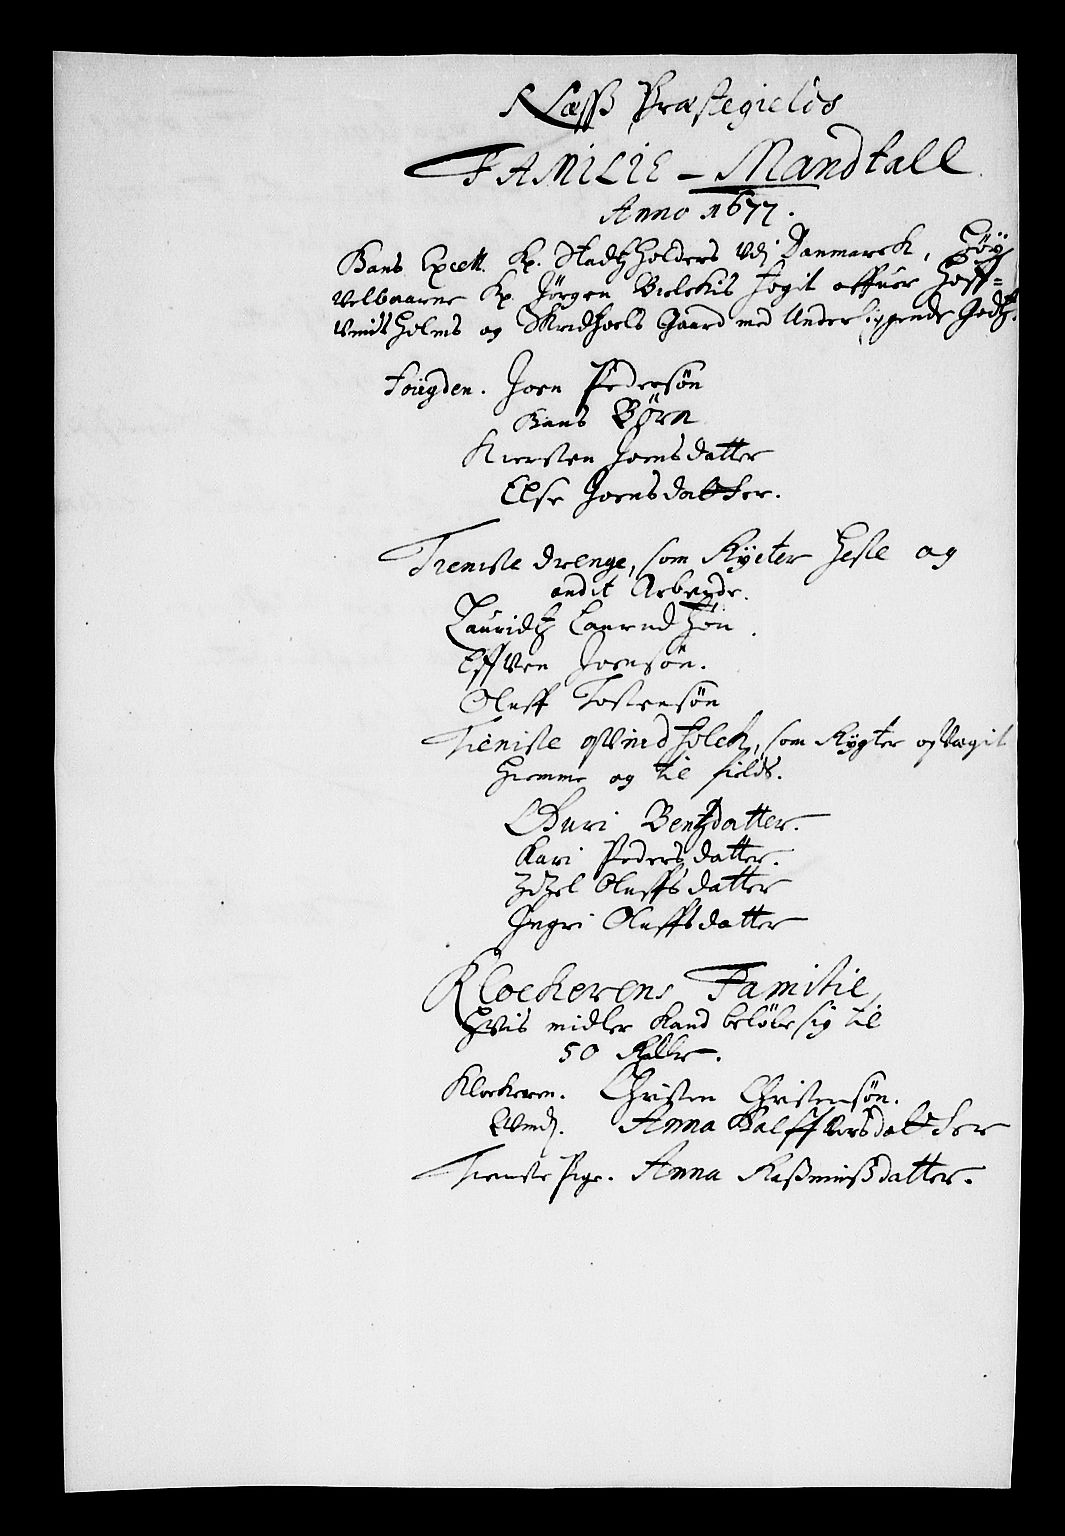 Næss Præstegields
FAMILIE - Mandtall
Anno 1677.
Hans Excell. Hr. Stadtholders udj Danmarck, Høy
velbaarne Hr. Jørgen Bielckis fogit offuer Hoff=
vindsholms og Skridshoels Gaard med Underliggende Godtz.
fougden. Joen Pedersøn
Hans Børn
Kiersten Joensdatter
Else Joensdatter.
Tieniste drenge, som Rycter Heste og
andit Arbeyde.
Lauridtz Laurudtzøn.
Effven Joensøn.
Oluff Tostensøn
Tieniste qvindfolck, som Rygter qvægit
hiemme og til fields.
Guri Bentzdatter.
Kari Pedersdatter.
Zidzel Oluffsdatter
Ingri Oluffsdatter
Klockerens Familie,
Hvis midler kand beløbe sig til
50 Rdlr.
Klockeren. Christen Christensøn.
Qvinde. Anna Halffvorsdatter
Tieniste Pige. Anna Rasmusdatter.